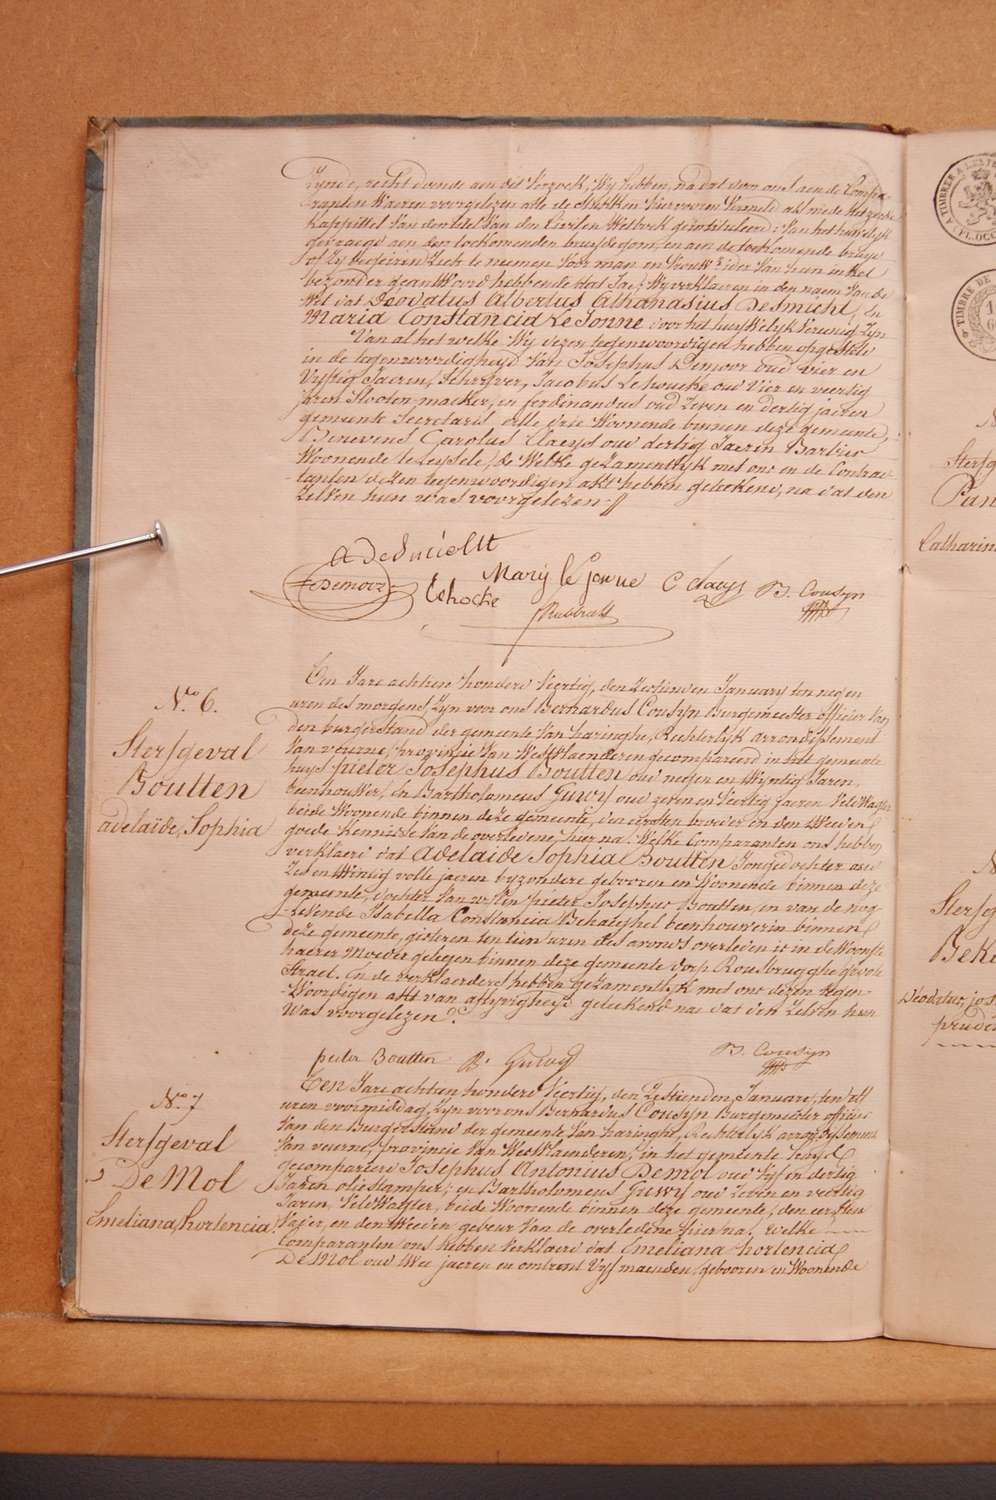 Zynde, recht doende aen dit Verzoek, Wy hebben, na dat voor ons aen de Compa-
ranten Waeren voorgelezen alle de Stukken hier vooren Vermeld als mede het zesde
Kappittel Van den titel Van den Civilen Wetboek geintituleerd: Van het huwelyk
gevraegd aen den toekomenden bruydegom, en aen de toekomende bruyd
of zy begeiren Zich te neemen Voor man en Vrouw? ider Van hun in het
bezonder geantWoord hebbende dat Jae; Wy verklaeren in den naem Van de
Wet dat Deodatus Albertus Athanasius Desmicht, En
Maria Constancia LeJonne door het huwelyk Verenigd Zyn
Van al het welke Wy dezen tegenwoordigen hebben opgesteld
in de tegenwoordigheyd Van Josephus Demoor oud Vier en
Vyftig Jaeren, Schryver, Jacobus Lehoucke oud Vier en veertig
jaren Slooten-maeker, en ferdinandus oud Zeven en dertig jaeren
gemeente Secretaris alle drie Woonende binnen deze gemeente,
Benevens Carolus Claeys oud dertig Jaeren Barbier
Woonende te Leysele, de Welke gezamentlyk met ons en de Contrac-
tanten dezen tegenwoordigen akt hebben geteekend, na dat den
Zelven hun was voorgelezen.
Demoor Lehocke Mary le Jonne C Claeys B. Cousyn
N.o 6.
Sterfgeval
Boutten
adelaïde, Sophia
Een Jare achtien honderd Veertig, den Zestienden January ten negen
uren des morgens Zyn voor ons Bernardus Cousyn Burgemeester officier Van
den burgerstand der gemeente Van haringhe, Rechterlyk arrondissement
Van veurne, provincie Van WestVlaenderen gecompareerd in het gemeente
huys pieter Josephus Boutten oud negen en Vyftig Jaren,
beenhouwer, En Bartholomeus Guwy oud zeven en Veertig Jaeren VeldWagter
beide Woonende binnen deze gemeente, den eersten broeder en den tweeden
goede Kennisse Van de overledene, hier na: Welke Comparanten ons hebben
verklaerd dat Adelaide Sophia Boutten Jongedochter oud
Zes en twintig volle jaeren byzondere gebooren en Woonende binnen deze
gemeente, dochter Van wylen pieter Josephus Boutten, en van de nog-
levende Isabella Constancia Behaeghel beenhouwerin binnen
deze gemeente, gisteren ten tien uren des avonds overleden is in de Woonste
haerer Moeder gelegen binnen deze gemeente dorp Rousbrugghe groote
Straet. En de verklaerders hebben gezamenlyk met ons dezen tegen-
Woordigen akt van aflyvigheyd geteekend na dat den Zelven hun
Was voorgelezen.
pieter Boutten B. Guwy B. Cousyn
N.o 7
Sterfgeval
DeMol
Emeliana, hortencia.
Een Jare achtien honderd Veertig, den Zestienden, Januarie, ten elf
uren voormiddag, Zyn voor ons Bernardus Cousyn Burgemeester officier
Van den Burgerstand der gemeente Van haringhe, Rechterlyk arrondissement
Van veurne, provincie Van WestVlaenderen, in het gemeente huys
gecompareerd Josephus Antonius Demol oud Vyf en dertig
Jaren oliestamper, en Bartholomeus Guwy oud Zeven en veertig
Jaren, VeldWagter, beide Woonende binnen deze gemeente, den eersten
Vader, en den tweeden gebeur Van de overledene hier na, welke
Comparanten ons hebben Verklaerd dat Emeliana hortencia
DeMol oud twee jaeren en omtrent Vyf maenden, gebooren en Woonende
Sterfg
Pan
Catharin
Sterfg
Beke
Deodatus, jos
prude